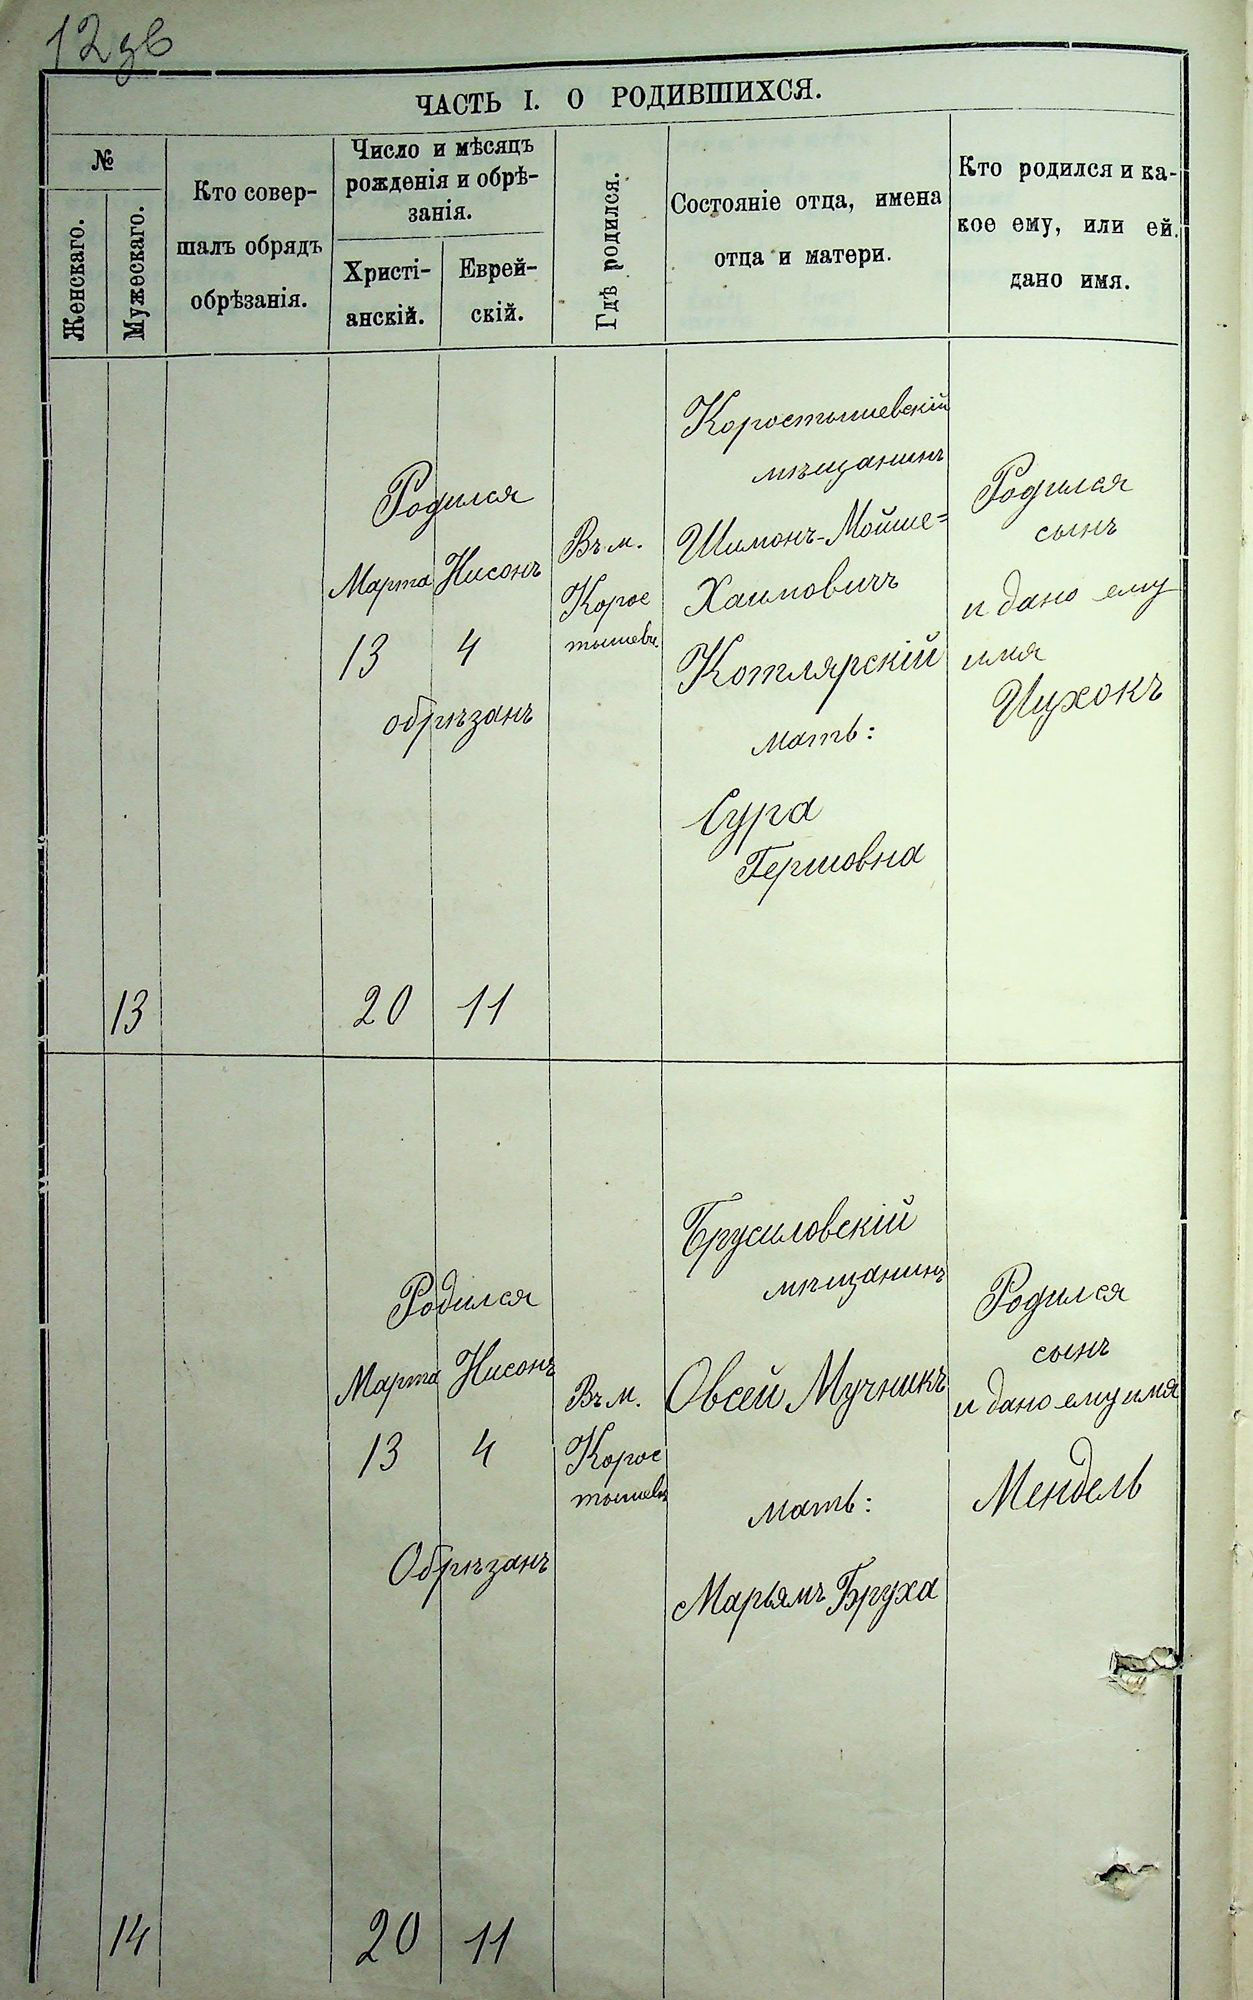 12зв
ЧАСТЬ I. О РОДИВШИХСЯ.
№
Женскаго.
Мужескаго.
Кто совер-
шалъ обрядъ
обрѣзанія.
Число и мѣсяцъ
рожденія и обрѣ-
занія.
Христі-
анскій.
Еврей-
скій.
Гдѣ родился.
Состояніе отца, имена
отца и матери.
Кто родился и ка-
кое ему, или ей.
дано имя.
13
Родился
Марта Нисонъ
13 4
обрѣзанъ
20 11
Въ м.
Корос
тышевѣ
Коростышевскій
мѣщанинъ
Шимонъ-Мойше=
Хаимовичъ
Котлярскій
мать:
Сура
Гершовна
Родился
сынъ
и дано ему
имя
Ицхокъ
14
Родился
Марта Нисонъ
13 4
Обрѣзанъ
20 11
Въ м.
Корос
тышевѣ
Брусиловскій
мѣщанинъ
Овсей Мучникъ
мать:
Марьямъ Бруха
Родился
сынъ
и дано ему имя
Мендель